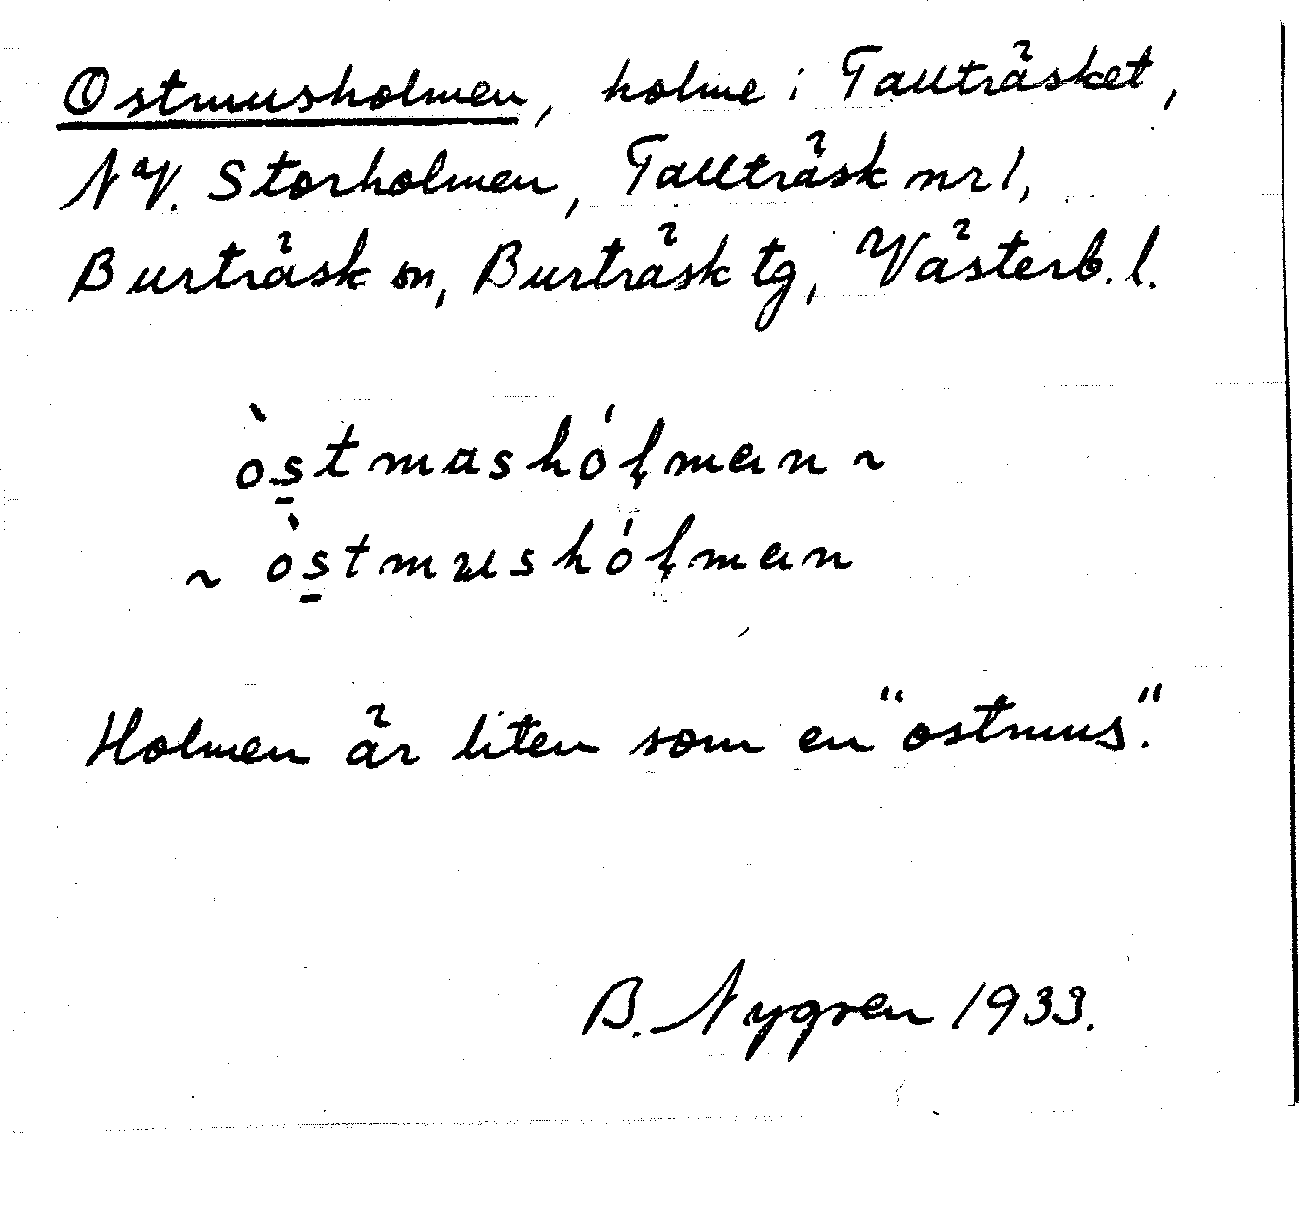 Ostmusholmen, holme i Tallträsket,
N a V. Storholmen, Tallträsk nr 1,
Burträsk sn, Burträsk tg, Västerb. l.
òstmashólman ~
~ òstmushólman
Holmen är liten som en "ostmus".
B. Nygren 1933.